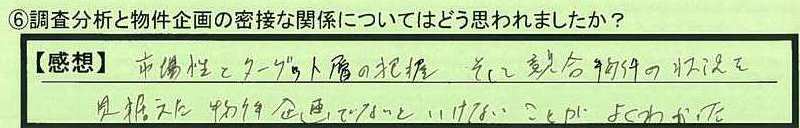 ⑥調査分析と物件企画の密接な関係についてはどう思われましたか？
【感想】 市場性とターゲット層の把握 そして競合物件の状況を
見据えた物件企画でないといけないことがよくわかった